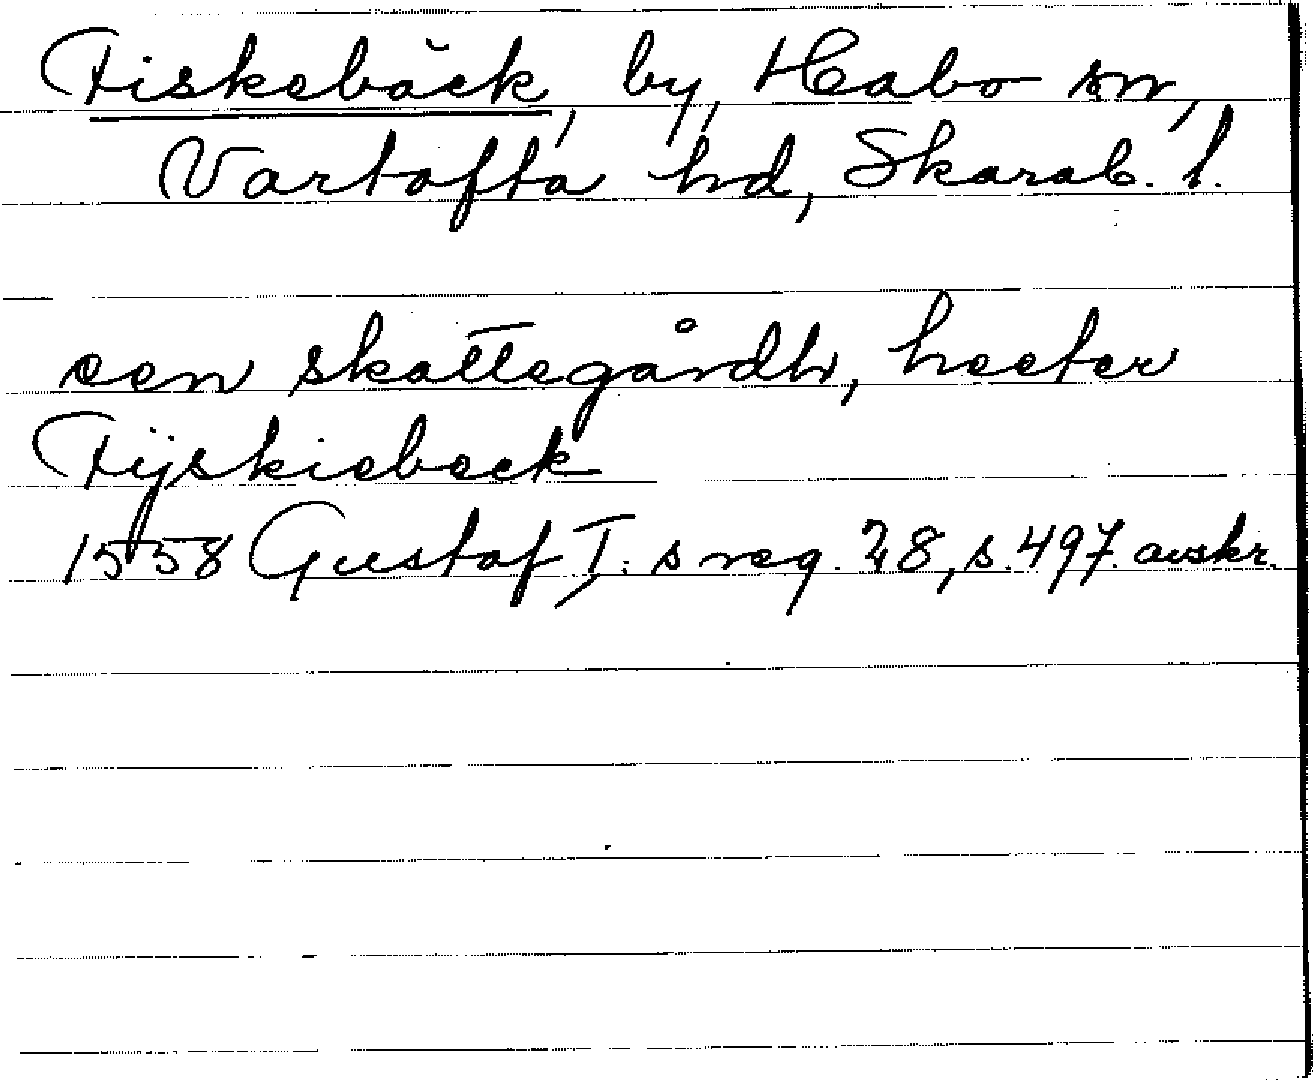 Fiskebäck, by, Habo sn,
Vartofta hd, Skarab. l.
een skattegårdh, heeter
Fijskiebeck
1558 Gustaf I:s reg. 28, s. 497. avskr.